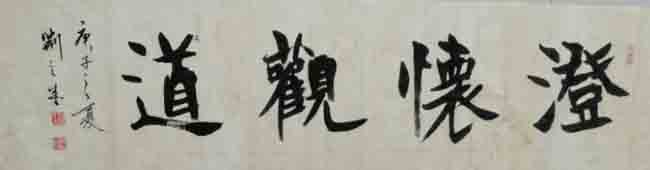 澄懷觀道
庚子之夏
劉